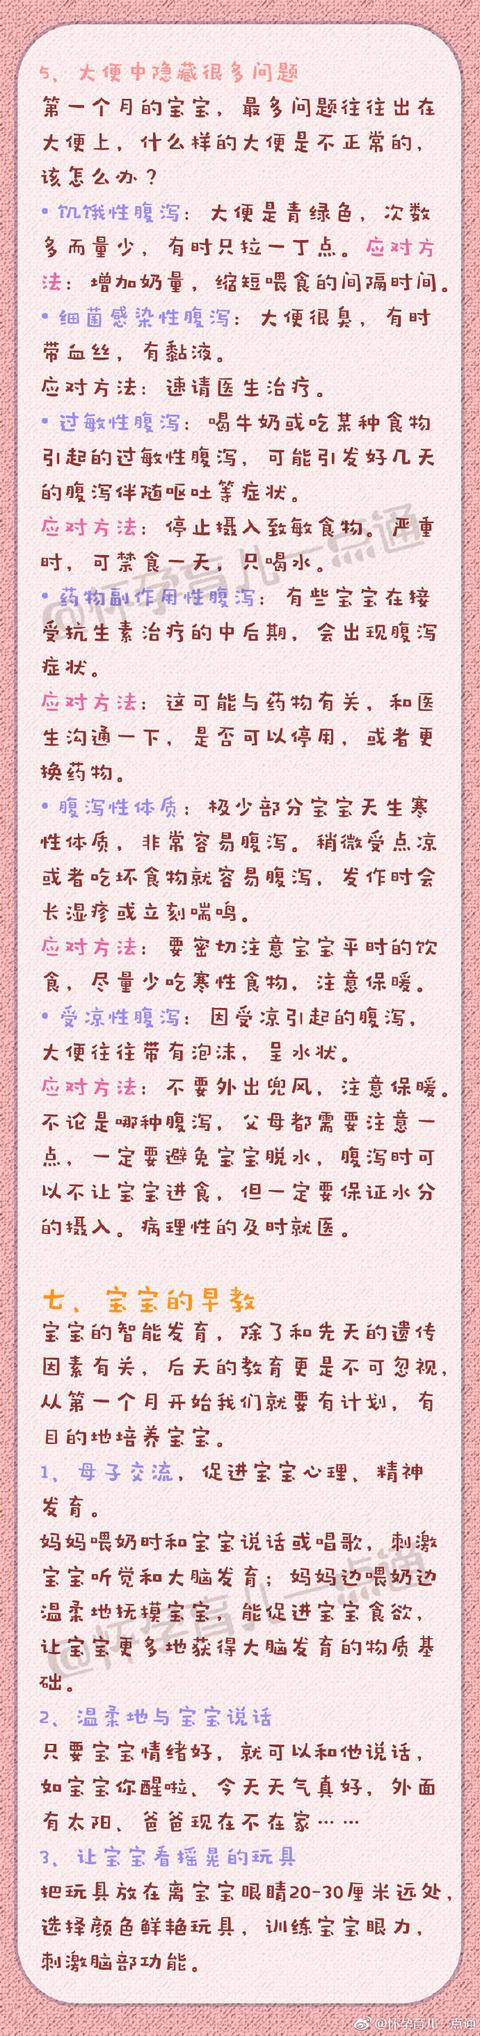 5、大便中隐藏很多问题
第一个月的宝宝，最多问题往往出在
大便上，什么样的大便是不正常的，
该怎么办？
•饥饿性腹泻：大便是青绿色，次数
多而量少，有时只拉一丁点。应对方
法：增加奶量，缩短喂食的间隔时间。
•细菌感染性腹泻：大便很臭，有时
带血丝，有黏液。
应对方法：速请医生治疗。
•过敏性腹泻：喝牛奶或吃某种食物
引起的过敏性腹泻，可能引发好几天
的腹泻伴随呕吐等症状。
应对方法：停止摄入致敏食物。严重
时，可禁食一天，只喝水。
@怀孕育儿一点通
•药物副作用性腹泻：有些宝宝在接
受抗生素治疗的中后期，会出现腹泻
症状。
应对方法：这可能与药物有关，和医
生沟通一下，是否可以停用，或者更
换药物。
•腹泻性体质：极少部分宝宝天生寒
性体质，非常容易腹泻。稍微受点凉
或者吃坏食物就容易腹泻，发作时会
长湿疹或立刻喘鸣。
应对方法：要密切注意宝宝平时的饮
食，尽量少吃寒性食物，注意保暖。
•受凉性腹泻：因受凉引起的腹泻，
大便往往带有泡沫，呈水状。
应对方法：不要外出兜风，注意保暖。
不论是哪种腹泻，父母都需要注意一
点，一定要避免宝宝脱水，腹泻时可
以不让宝宝进食，但一定要保证水分
的摄入。病理性的及时就医。
七、宝宝的早教
宝宝的智能发育，除了和先天的遗传
因素有关，后天的教育更是不可忽视，
从第一个月开始我们就要有计划，有
目的地培养宝宝。
1、母子交流，促进宝宝心理、精神
发育。
妈妈喂奶时和宝宝说话或唱歌，刺激
宝宝听觉和大脑发育；妈妈边喂奶边
温柔地抚摸宝宝，能促进宝宝食欲，
让宝宝更多地获得大脑发育的物质基
础。
@怀孕育儿一点通
2、温柔地与宝宝说话
只要宝宝情绪好，就可以和他说话，
如宝宝你醒啦、今天天气真好，外面
有太阳、爸爸现在不在家……
3、让宝宝看摇晃的玩具
把玩具放在离宝宝眼睛20-30厘米远处，
选择颜色鲜艳玩具，训练宝宝眼力，
刺激脑部功能。
@怀孕育儿一点通